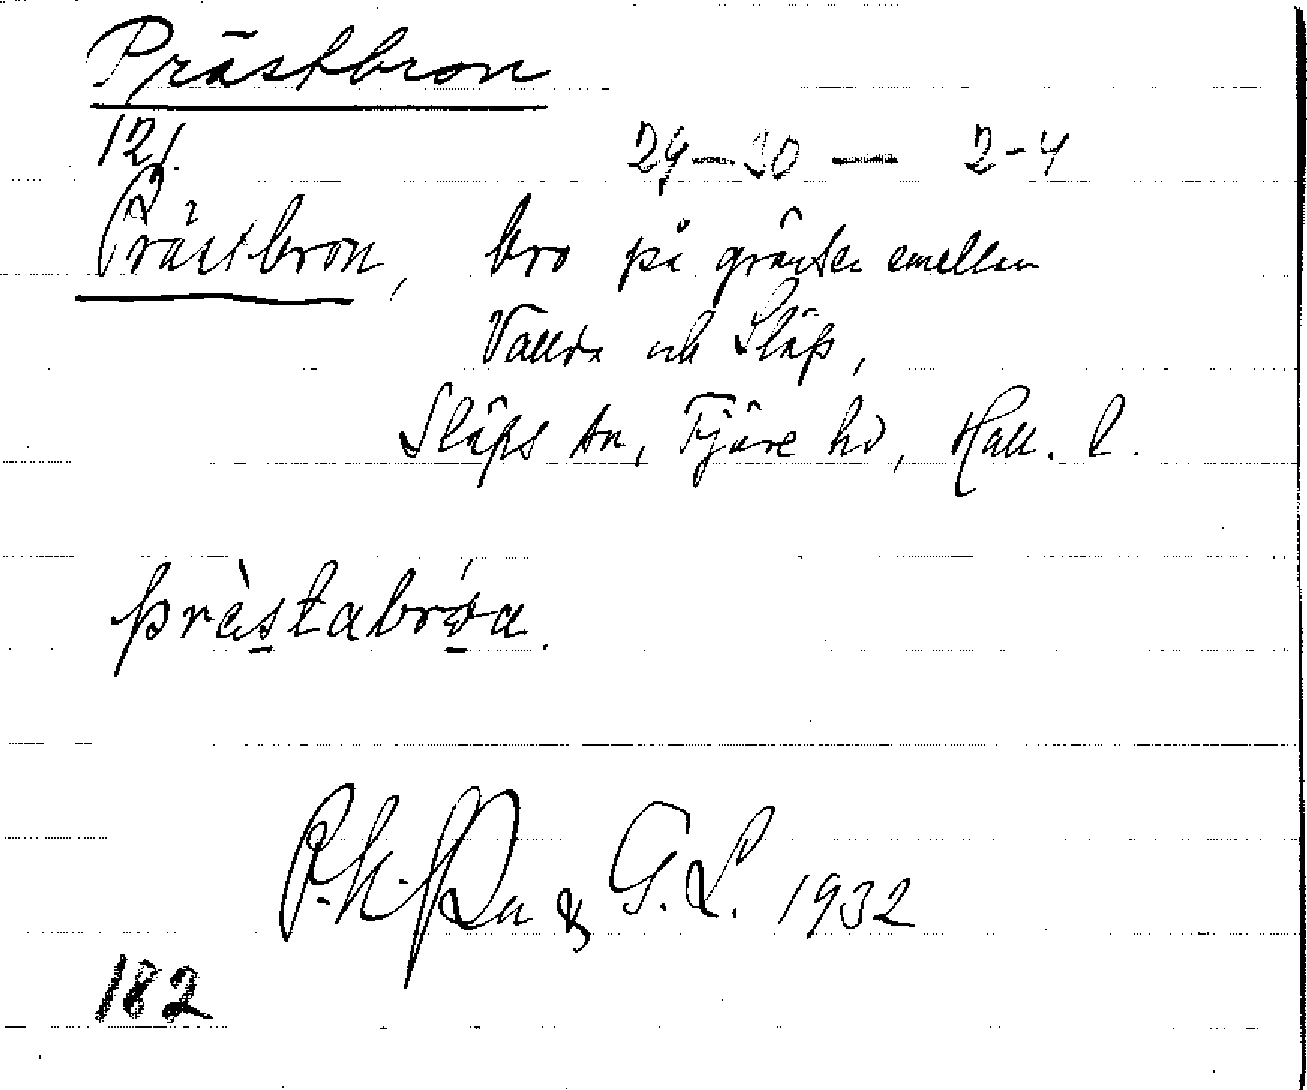 Prästbron
121. 29—30 — 2-4
Prästbron, bro på gränsen emellan
Vallda och Släp,
Släps sn, Fjäre hd, Hall. l.
prὰstabróa.
& G. L. 1932
182